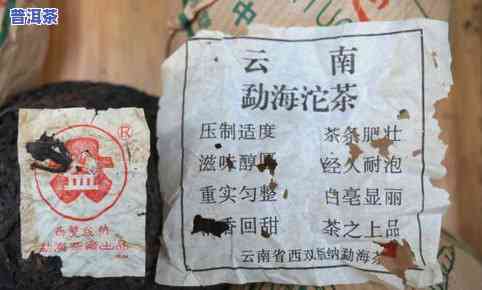 普洱茶
云南
勐海沱茶
压制适度 茶条肥壮
滋味醇厚 经久耐泡
重实匀整 白毫显丽
香回甜 茶之上品
云南省西双版纳勐海茶
®
西双版纳
勐海 出品